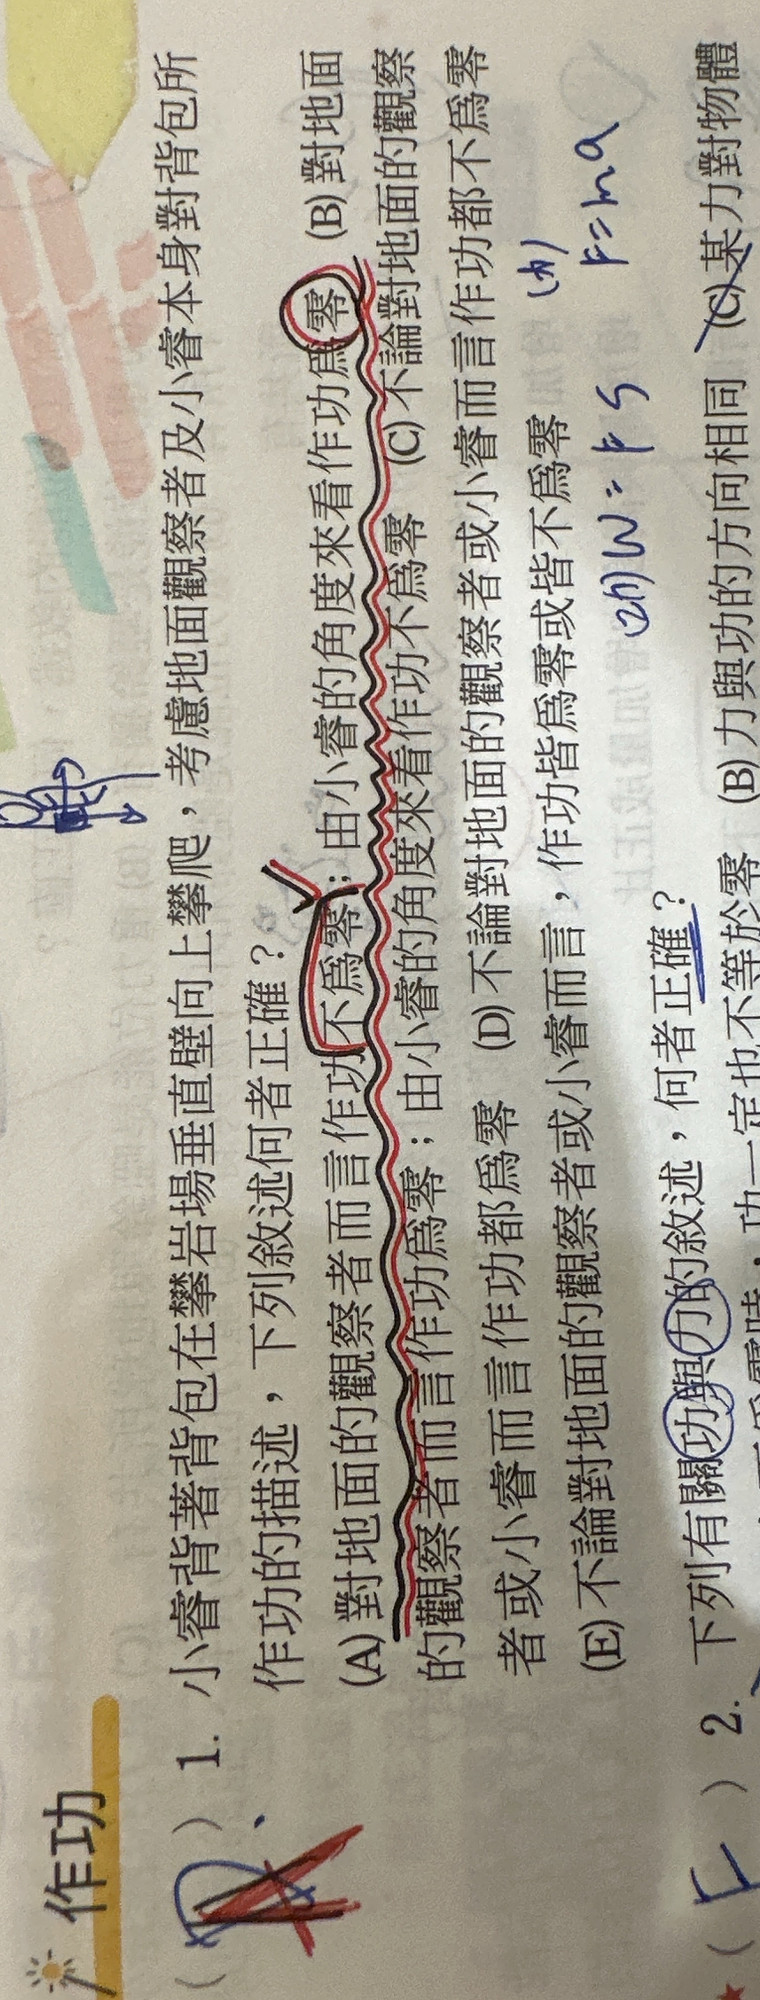 作功
( A ) 1. 小睿背著背包在攀岩場垂直壁向上攀爬，考慮地面觀察者及小睿本身對背包所
作功的描述，下列敘述何者正確？
(A) 對地面的觀察者而言作功不為零；由小睿的角度來看作功為零 (B) 對地面
的觀察者而言作功為零；由小睿的角度來看作功不為零 (C) 不論對地面的觀察
者或小睿而言作功都為零 (D) 不論對地面的觀察者或小睿而言作功都不為零
(E) 不論對地面的觀察者或小睿而言，作功皆為零或皆不為零
(功) W = F S (力) F = ma
( E ) 2. 下列有關功與力的敘述，何者正確？
(B) 力與功的方向相同 (C) 某力對物體
功一定也不等於零